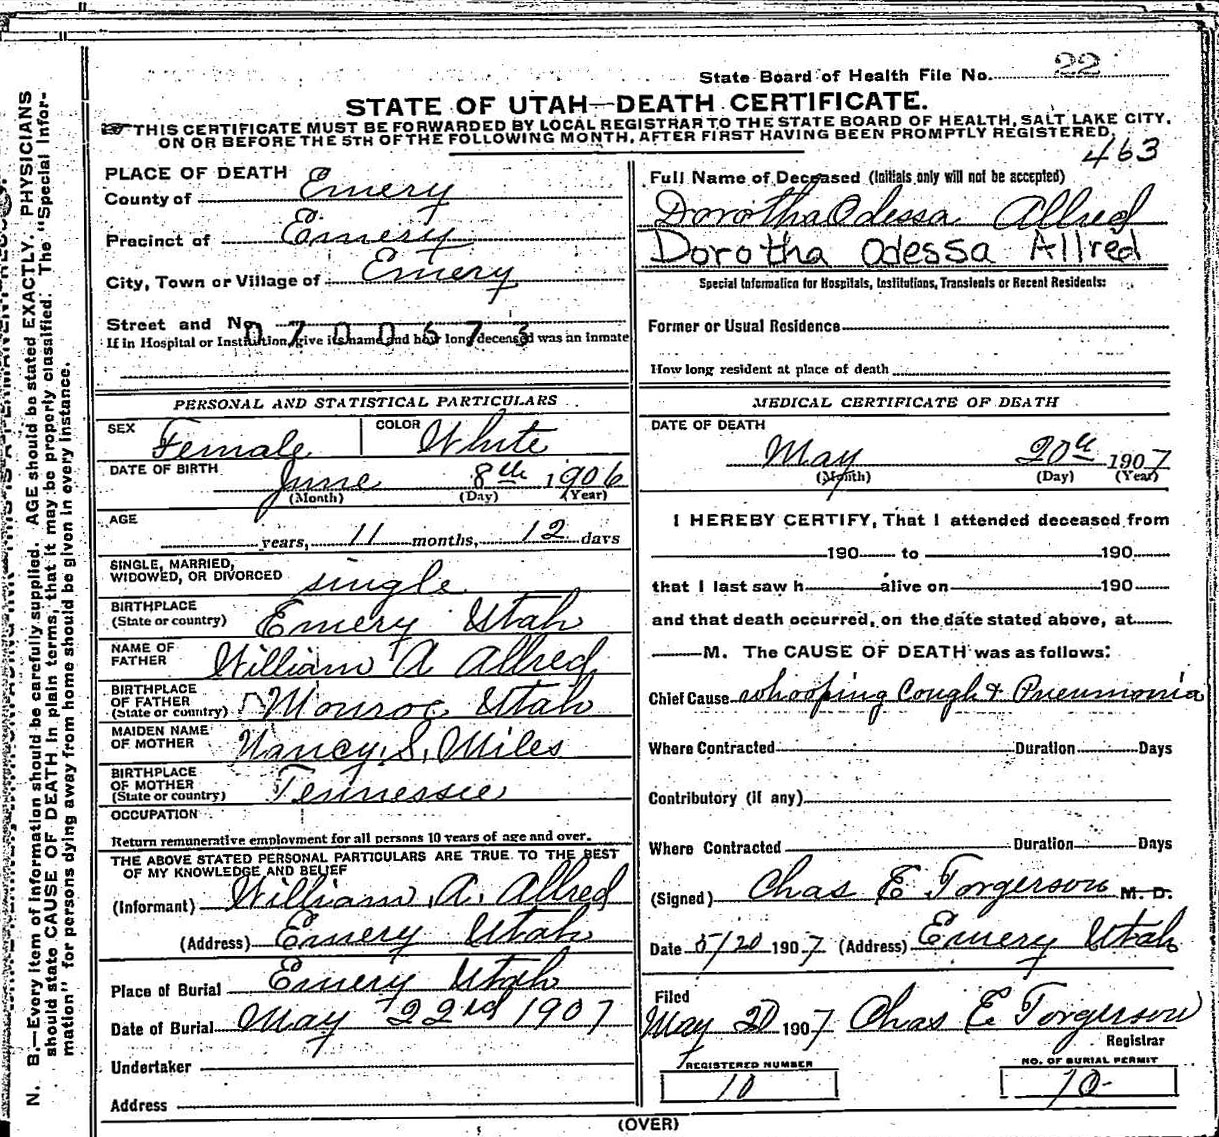 State Board of Health File No. 22
STATE OF UTAH—DEATH CERTIFICATE.
THIS CERTIFICATE MUST BE FORWARDED BY LOCAL REGISTRAR TO THE STATE BOARD OF HEALTH, SALT LAKE CITY,
ON OR BEFORE THE 5TH OF THE FOLLOWING MONTH, AFTER FIRST HAVING BEEN PROMPTLY REGISTERED.
463
PLACE OF DEATH
County of Emery
Precinct of Emery
City, Town or Village of Emery
Street and No.
0700673
If in Hospital or Institution, give its name and how long deceased was an inmate
Full Name of Deceased (Initials only will not be accepted)
Dorotha Odessa Allred
Dorotha Odessa Allred
Special Information for Hospitals, Institutions, Transients or Recent Residents:
Former or Usual Residence
How long resident at place of death
PERSONAL AND STATISTICAL PARTICULARS
SEX Female COLOR White
DATE OF BIRTH June 8th 1906
(Month) (Day) (Year)
AGE
years, 11 months, 12 days
SINGLE, MARRIED,
WIDOWED, OR DIVORCED single
BIRTHPLACE
(State or country) Emery Utah
NAME OF
FATHER William A Allred
BIRTHPLACE
OF FATHER
(State or country) Monroe Utah
MAIDEN NAME
OF MOTHER Nancy S. Miles
BIRTHPLACE
OF MOTHER
(State or country) Tennessee
OCCUPATION
Return remunerative employment for all persons 10 years of age and over.
THE ABOVE STATED PERSONAL PARTICULARS ARE TRUE TO THE BEST
OF MY KNOWLEDGE AND BELIEF
(Informant) William A. Allred
(Address) Emery Utah
Place of Burial Emery Utah
Date of Burial May 22nd 1907
Undertaker
Address
MEDICAL CERTIFICATE OF DEATH
DATE OF DEATH
May 20th 1907
(Month) (Day) (Year)
I HEREBY CERTIFY, That I attended deceased from
190 to 190
that I last saw h alive on 190
and that death occurred, on the date stated above, at
M. The CAUSE OF DEATH was as follows:
Chief Cause whooping Cough & Pneumonia
Where Contracted Duration Days
Contributory (if any)
Where Contracted Duration Days
(Signed) Chas E Torgerson M. D.
Date 5/20 1907 (Address) Emery Utah
Filed
May 20 1907 Chas E Torgerson
Registrar
REGISTERED NUMBER
10
NO. OF BURIAL PERMIT
10
(OVER)
N. B.—Every item of information should be carefully supplied. AGE should be stated EXACTLY. PHYSICIANS
should state CAUSE OF DEATH in plain terms, that it may be properly classified. The "Special Infor-
mation" for persons dying away from home should be given in every instance.